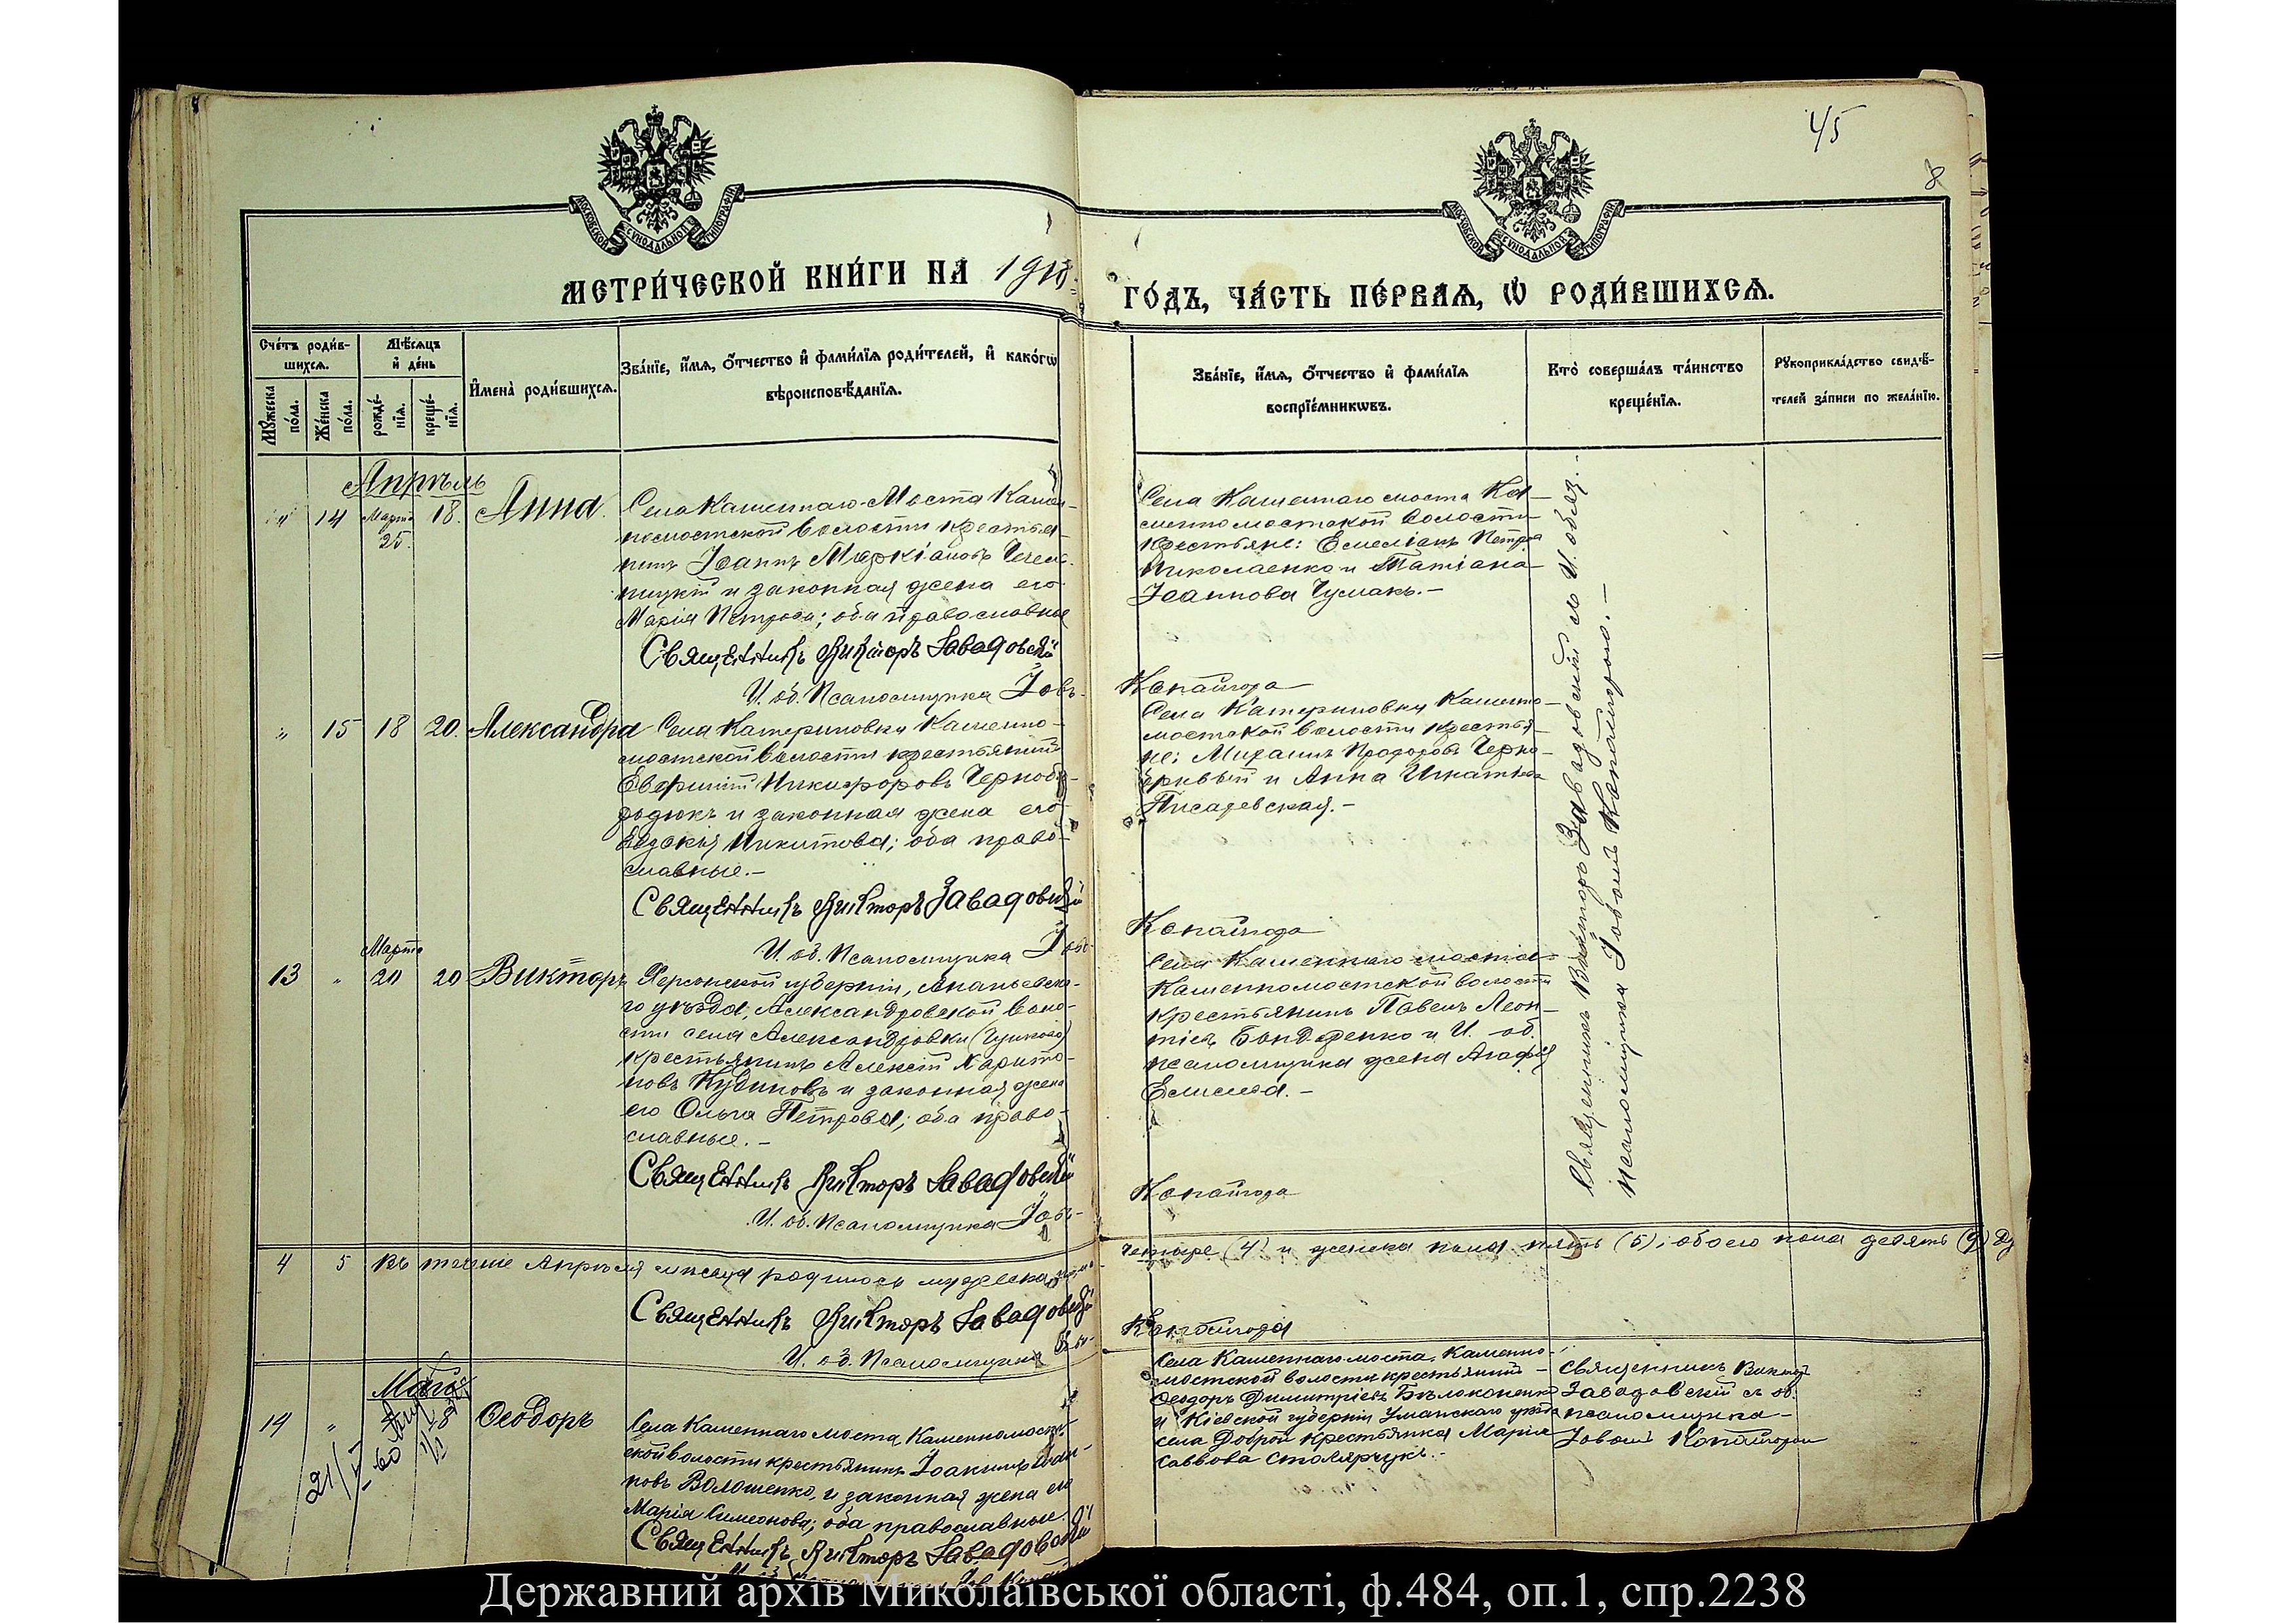 45
8
МОСКОВСКОЙ СѴНОДАЛЬНОЙ ТИПОГРАФІИ
МОСКОВСКОЙ СѴНОДАЛЬНОЙ ТИПОГРАФІИ
МЕТРИ́ЧЕСКОЙ КНИ́ГИ НА 1918
ГО́ДЪ, ЧА́СТЬ ПЕ́РВАѦ, Ѡ РОДИ́ВШИХСѦ.
Сче́тъ роди́в-
шихсѧ.
Мꙋ́жеска по́ла.
Же́нска по́ла.
Мѣ́сѧцъ
и҆ де́нь
рожде́-
нїѧ.
креще́-
нїѧ.
И҆мена̀ роди́вшихсѧ.
Зва́нїе, и҆́мѧ, ѻ҆́тчество и҆ фами́лїѧ роди́телей, и҆ како́гѡ
вѣроисповѣ́данїѧ.
Зва́нїе, и҆́мѧ, ѻ҆́тчество и҆ фами́лїѧ
воспрїе́мникѡвъ.
Кто̀ соверша́лъ та́инство
креще́нїѧ.
Рꙋкоприкла́дство свидѣ́-
телей за́писи по жела́нїю.
Апрѣль
" 14 Марта 25. 18. Анна.
Села Каменнаго-Моста Камен-
номостской волости крестья-
нинъ Іоаннъ Маркіановъ
и законная жена его
Марія Петрова; оба православные
Священникъ Викторъ Завадовскій
И. об. Псаломщика Іовъ
Села Каменнаго моста Ка-
менномостской волости
крестьяне: Емеліанъ Петровъ
Николаенко и Татіана
Іоаннова Чумакъ.-
Копайгора
" 15 18 20. Александра
Села Катериновки Каменно-
мостской волости крестьянинъ
Евфимій Никифоровъ
и законная жена его
Евдокія Никитова; оба право-
славные.-
Священникъ Викторъ Завадовскій
И. об. Псаломщика Іовъ
Села Катериновки Каменно-
мостской волости крестья-
не: Михаилъ
и Анна Игнатіева
Писаревская.-
Копайгора
13 " Марта 20 20 Викторъ
Херсонской губерніи, Ананьевска-
го уѣзда, Александровской воло-
сти села Александровки
крестьянинъ Алексій Харито-
новъ Кудиновъ и законная жена
его Ольга Петрова; оба право-
славные.-
Священникъ Викторъ Завадовскій
И. об. Псаломщика Іовъ
Села Каменнаго моста
Каменномостской волости
крестьянинъ Павелъ Леон-
тіевъ Бондаренко и И. об.
псаломщика жена Агафія
Копайгора
Священникъ Викторъ Завадовскій съ И. обяз.
псаломщика Іовомъ Копайгорою.-
4 5 Въ теченіе Апрѣля мѣсяца родилось мужеска пола
четыре (4) и женска пола пять (5); обоего пола девять (9)
Священникъ Викторъ Завадовскій
И. об. Псаломщика Іовъ
Копайгора
Май
14 " Ѳеодоръ
Села Каменнаго моста, Каменномост-
ской волости крестьянинъ Іоакимъ
Волошенко, и законная жена его
Марія Симеонова; оба православные.
Священникъ Викторъ Завадовскій
Села Каменнаго моста, Каменно-
мостской волости крестьянинъ
Ѳеодоръ Димитріевъ Бѣлоконенко
и Кіевской губерніи Уманскаго уѣзда
села Доброй крестьянка Марія
Саввова Столярчукъ.-
Священникъ Викторъ
Завадовскій съ об.
псаломщика
Іовомъ Копайгорою
Державний архів Миколаївської області, ф.484, оп.1, спр.2238